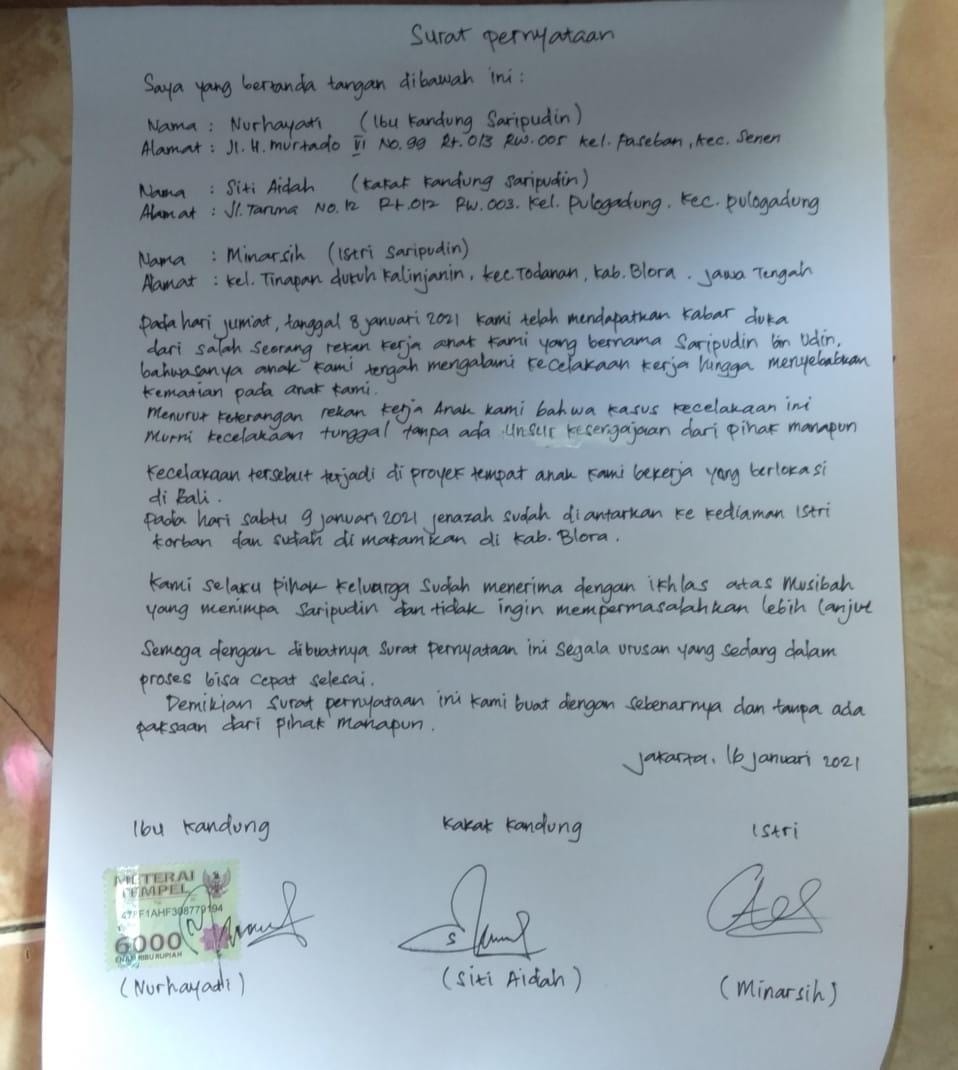 Surat pernyataan
Saya yang bertanda tangan dibawah ini :
Nama : Nurhayati (Ibu Kandung Saripudin)
Alamat : Jl. H. Murtado VI No. 99 Rt. 013 RW. 005 kel. Paseban, kec. Senen
Nama : Siti Aidah (Kakak Kandung Saripudin)
Alamat : Jl. Taruna No. 12 Rt. 012 RW. 003. Kel. Pulogadung. Kec. Pulogadung
Nama : Minarsih (Istri Saripudin)
Alamat : Kel. Tinapan dukuh Kalinjanin, kec. Todanan, Kab. Blora. Jawa Tengah
Pada hari jum'at, tanggal 8 januari 2021 kami telah mendapatkan kabar duka
dari salah seorang rekan kerja anak kami yang bernama Saripudin bin Udin,
bahwasanya anak kami tengah mengalami kecelakaan kerja hingga menyebabkan
kematian pada anak kami.
Menurut keterangan rekan kerja Anak kami bahwa kasus kecelakaan ini
Murni kecelakaan tunggal tanpa ada Unsur kesengajaan dari pihak manapun
Kecelakaan tersebut terjadi di proyek tempat anak kami bekerja yang berlokasi
di Bali.
Pada hari sabtu 9 januari 2021 jenazah sudah diantarkan ke kediaman istri
korban dan sudah di makamkan di Kab. Blora.
Kami selaku pihak keluarga sudah menerima dengan ikhlas atas musibah
yang menimpa Saripudin dan tidak ingin mempermasalahkan lebih lanjut
Semoga dengan dibuatnya surat pernyataan ini segala urusan yang sedang dalam
proses bisa cepat selesai.
Demikian surat pernyataan ini kami buat dengan sebenarnya dan tanpa ada
paksaan dari pihak manapun.
Jakarta, 16 Januari 2021
Ibu Kandung Kakak Kandung Istri
METERAI
TEMPEL
47FF1AHF308779194
6000
ENAM RIBU RUPIAH
(Nurhayati) (Siti Aidah) (Minarsih)